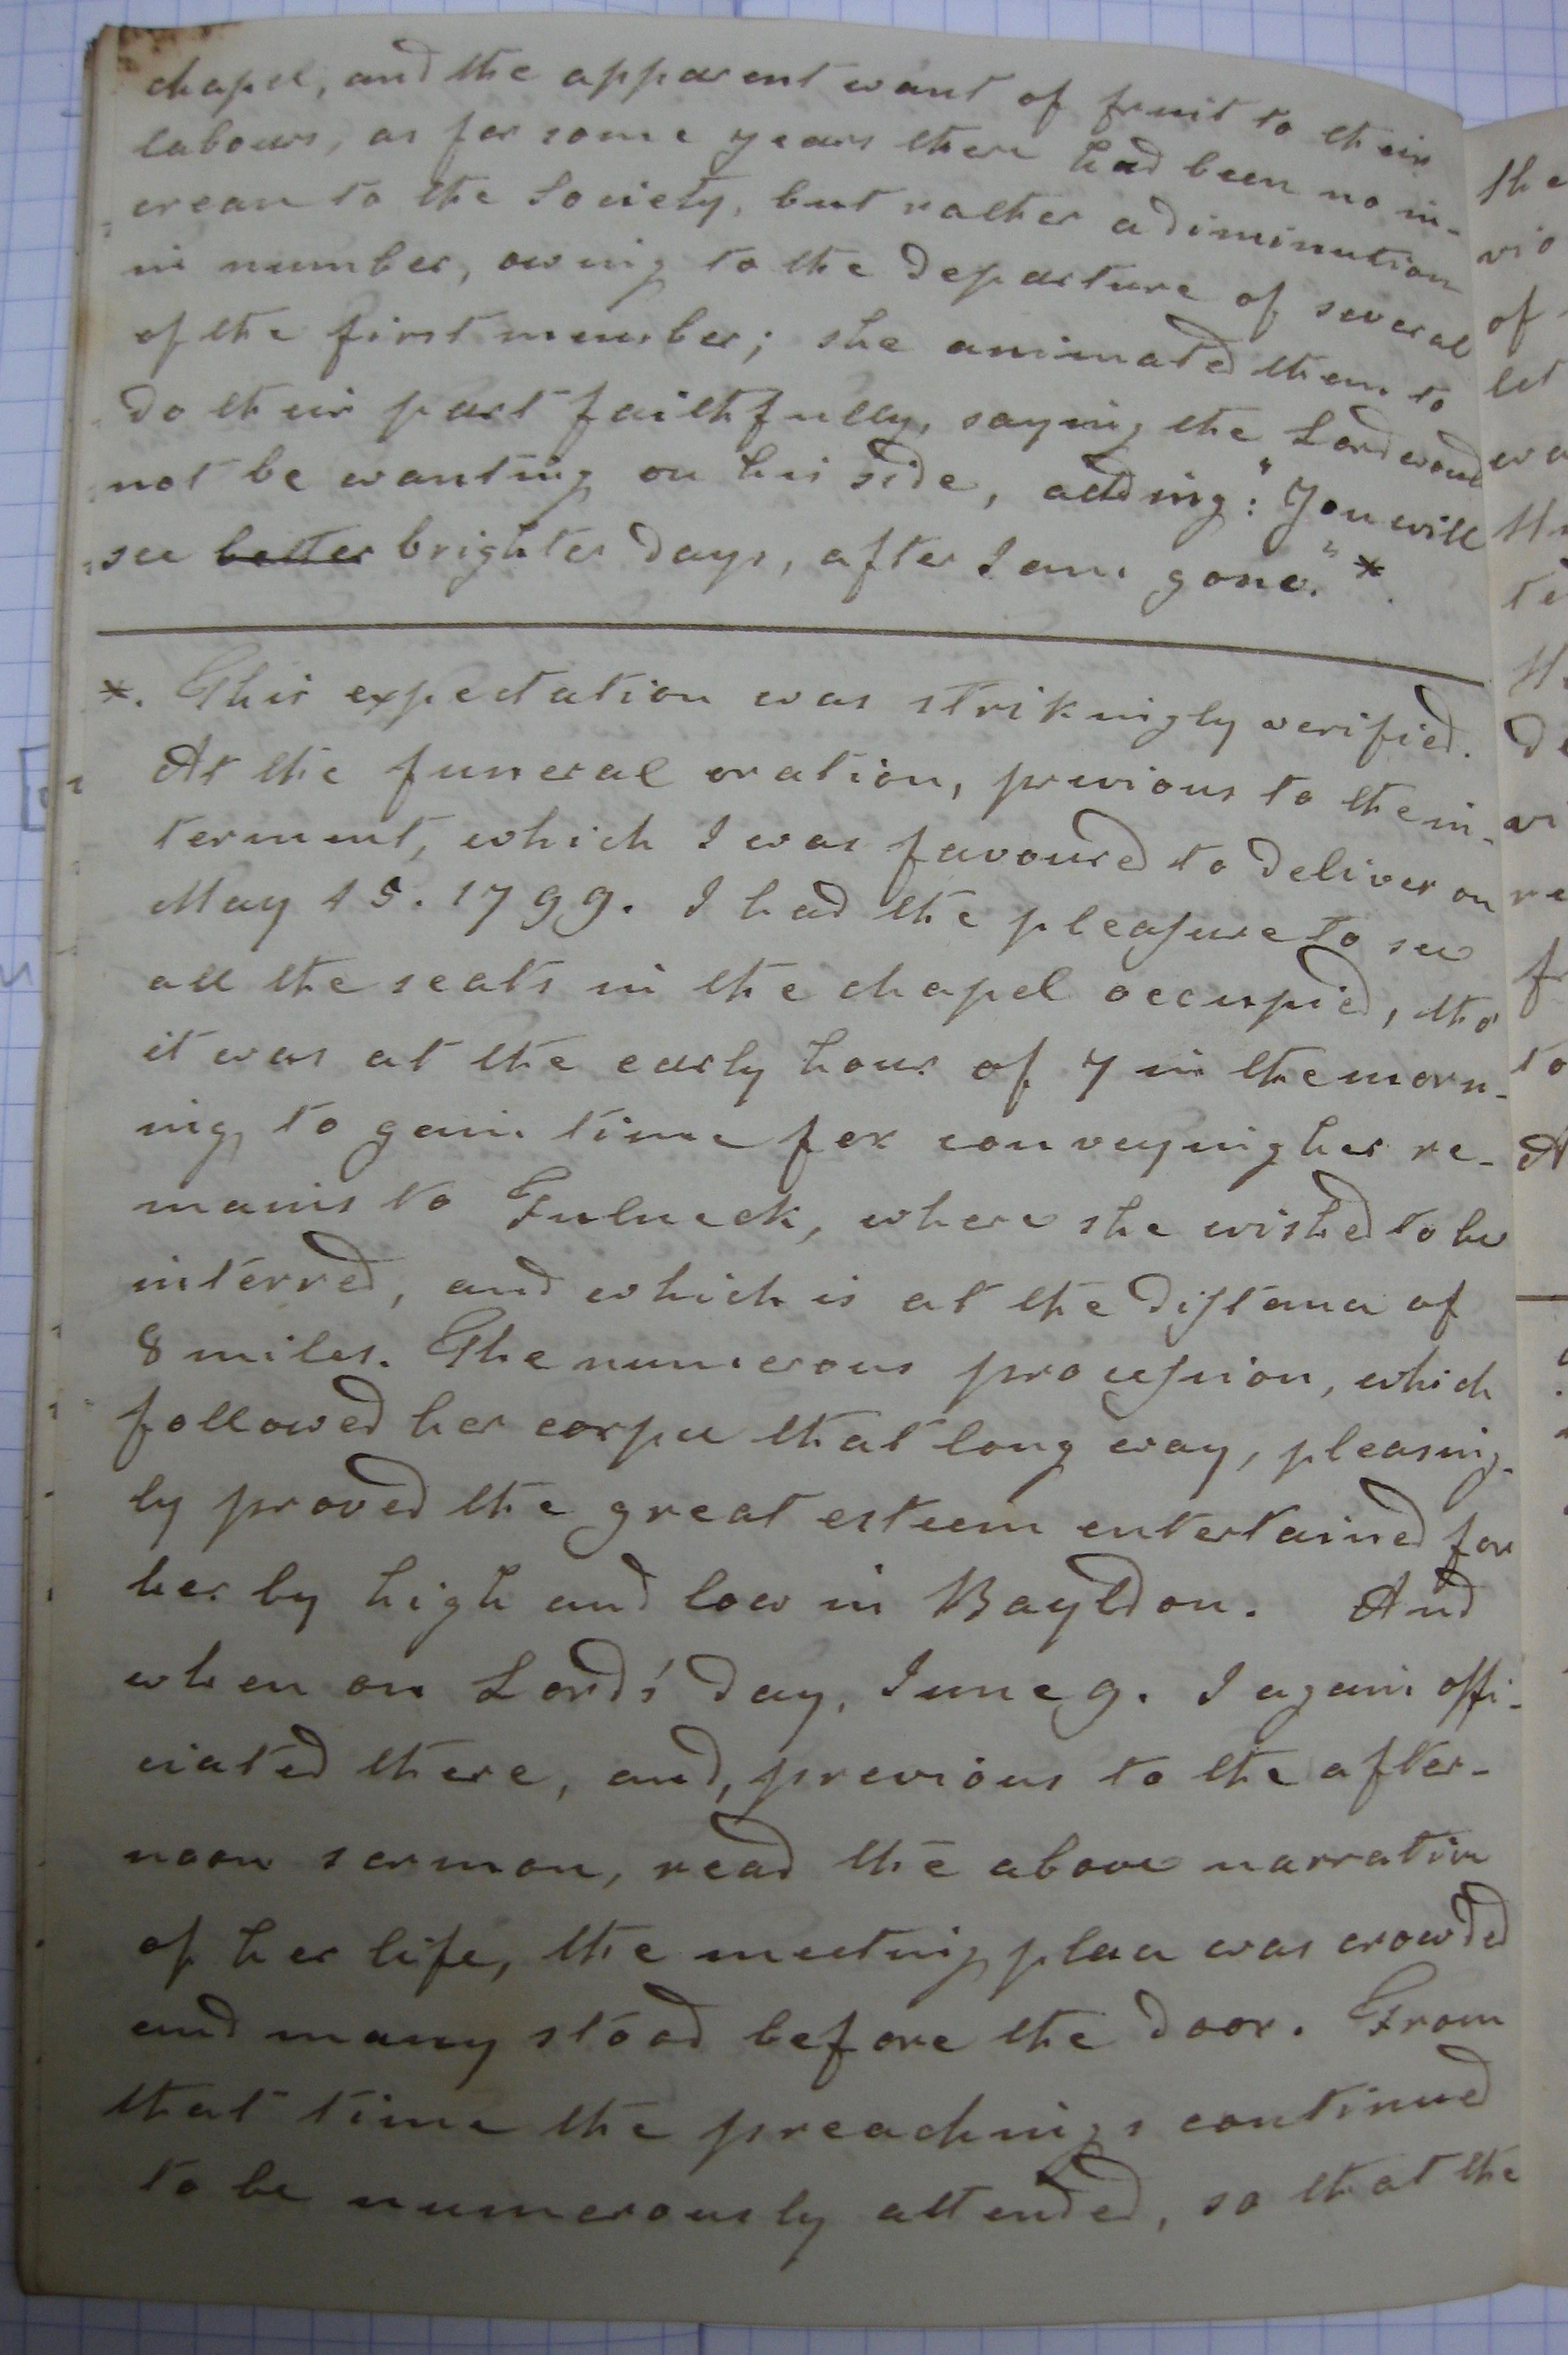 chapel, and the apparent want of fruit to their
labours, as for some years there had been no in-
crease to the Society, but rather a diminution
in number, owing to the departure of several
of the first member; she animated them to
do their part faithfully, saying the Lord would
not be wanting on his side, adding: "You will
see better brighter days, after I am gone." *.
*. This expectation was strikingly verified.
At the funeral oration, previous to the in-
terment, which I was favoured to deliver on
May 15. 1799. I had the pleasure to see
all the seats in the chapel occupied, tho'
it was at the early hour of 7 in the morn-
ing, to gain time for conveying her re-
mains to Fulneck, where she wished to be
interred, and which is at the distance of
8 miles. The numerous procession, which
followed her corpse that long way, pleasing-
ly proved the great esteem entertained for
her by high and low in Bayldon. And
when on Lord's day, June 9. I again offi-
ciated there, and, previous to the after-
noon sermon, read the above narrative
of her life, the meeting place was crowded
and many stood before the door. From
that time the preachings continued
to be numerously attended, so that the
the
vio
of
let
to